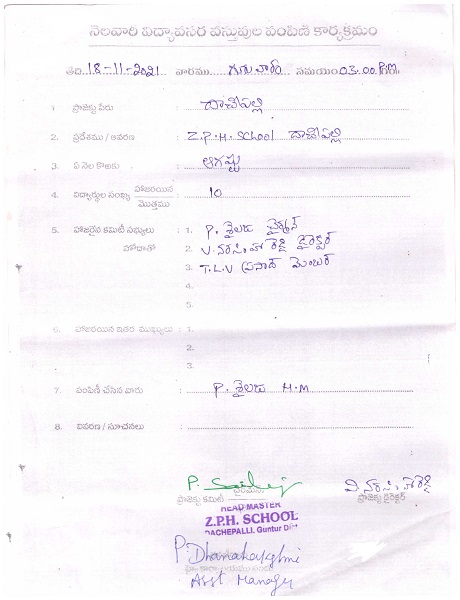 నెలవారి విద్యావసర వస్తువుల పంపిణి కార్యక్రమం
తేది. 18-11-2021 వారము గురువారం సమయం 03.00 P.M
1. ప్రాజెక్టు పేరు : దాచేపల్లి
2. ప్రదేశము / ఆవరణ : Z.P.H. School దాచేపల్లి
3. ఏ నెల కొరకు : ఆగష్టు
4. విద్యార్థుల సంఖ్య హాజరయిన / మొత్తము : 10
5. హాజరైన కమిటీ సభ్యులు : 1. P. శైలజ ఛైర్మన్
హోదాతో 2. V. నరసింహారెడ్డి డైరెక్టర్
3. T.L.V ప్రసాద్ మెంబర్
4.
5.
6. హాజరయిన ఇతర ముఖ్యులు : 1.
2.
3.
7. పంపిణీ చేసిన వారు : P. శైలజ H.M
8. వివరణ / సూచనలు :
వి. నరసింహారెడ్డి
ప్రాజెక్టు కమిటీ ఛైర్మన్ ప్రాజెక్టు డైరెక్టర్
HEAD MASTER
Z.P.H. SCHOOL
DACHEPALLI, Guntur Dist
P. Dhanalakshmi
Asst Manager